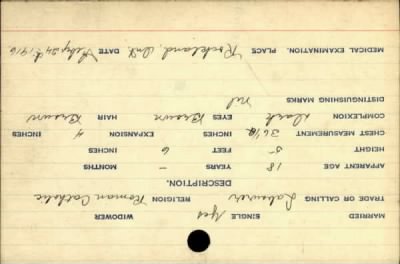 MARRIED SINGLE Yes WIDOWER
TRADE OR CALLING Labourer RELIGION Roman Catholic
DESCRIPTION.
APPARENT AGE 18 YEARS - MONTHS
HEIGHT 5 FEET 6 INCHES
CHEST MEASUREMENT 36½ INCHES EXPANSION 4 INCHES
COMPLEXION Dark EYES Brown HAIR Brown
DISTINGUISHING MARKS nil
MEDICAL EXAMINATION. PLACE Rockland, Ont. DATE Feby 24th 1916